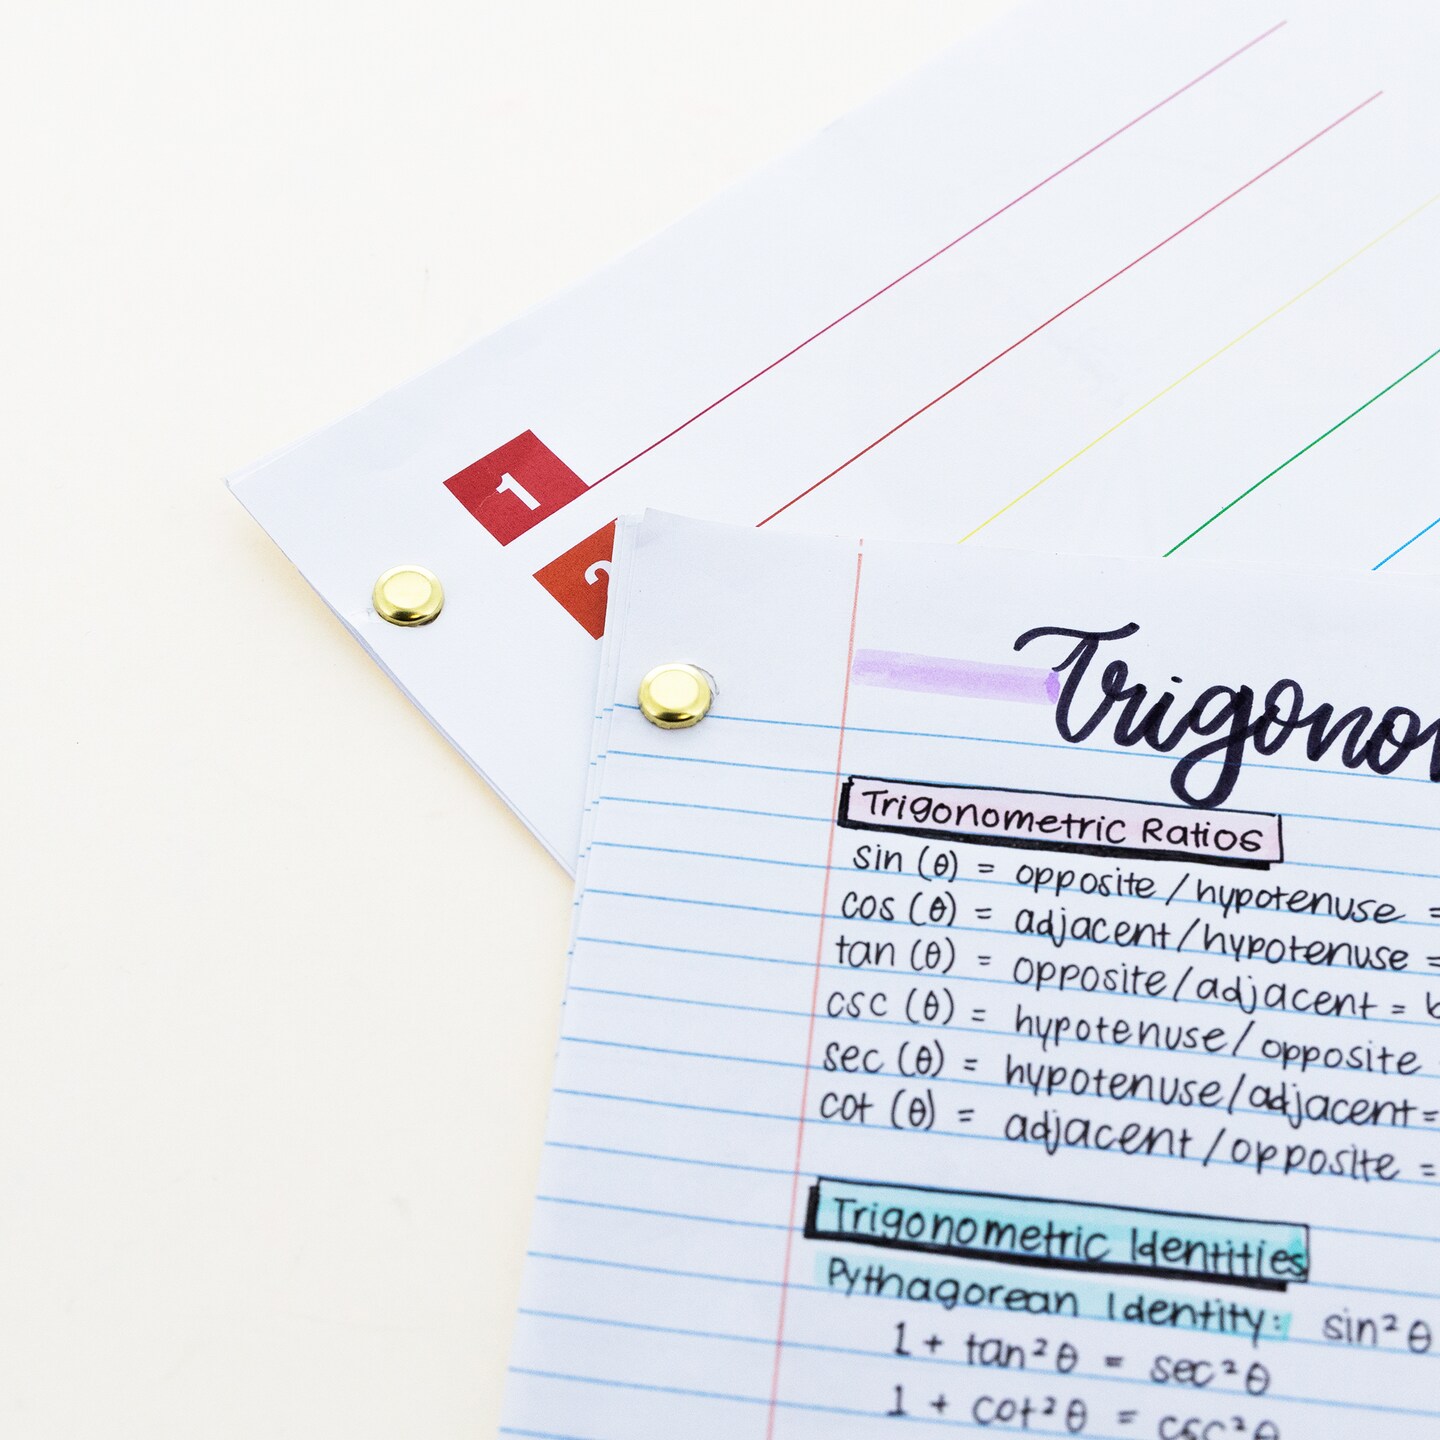 1
2
Trigono
Trigonometric Ratios
sin (θ) = opposite / hypotenuse =
cos (θ) = adjacent / hypotenuse =
tan (θ) = opposite / adjacent = b
csc (θ) = hypotenuse / opposite
sec (θ) = hypotenuse / adjacent =
cot (θ) = adjacent / opposite =
Trigonometric Identities
Pythagorean Identity: sin²θ
1 + tan²θ = sec²θ
1 + cot²θ = csc²θ